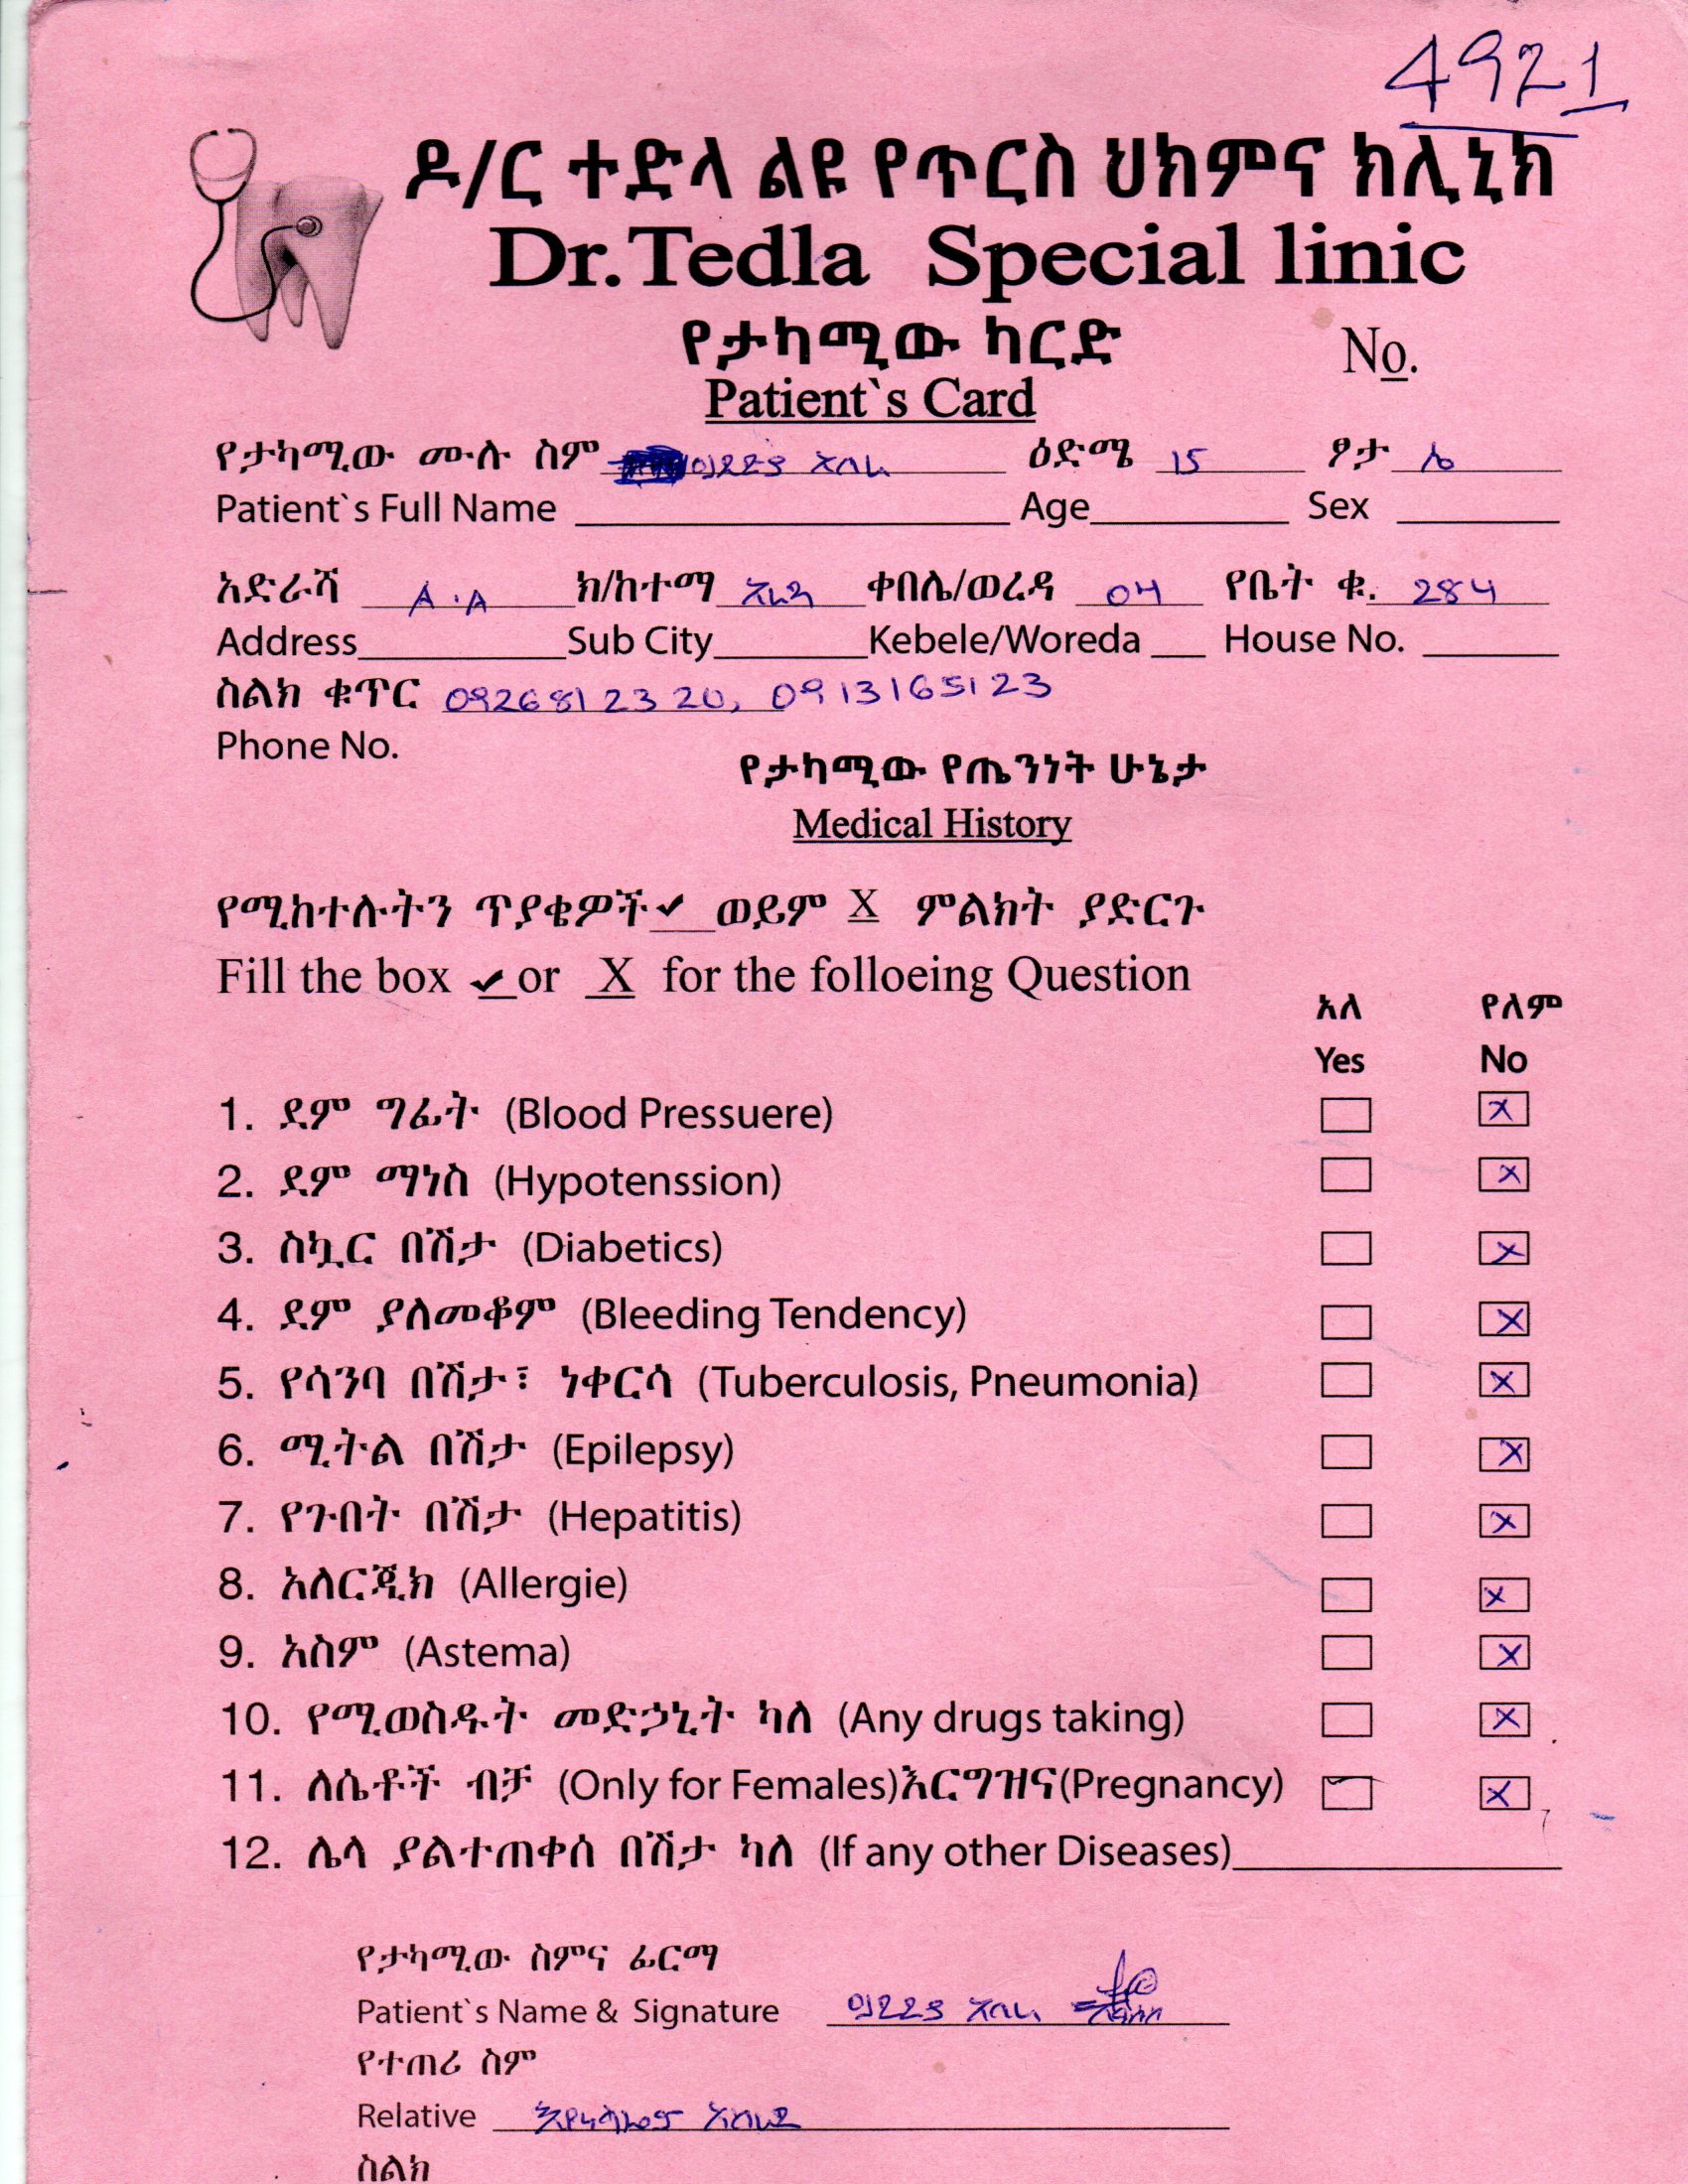 4921
ዶ/ር ተድላ ልዩ የጥርስ ህክምና ክሊኒክ
Dr.Tedla Special linic
የታካሚው ካርድ No.
Patient`s Card
የታካሚው ሙሉ ስም ዕድሜ 15 ፆታ
Patient`s Full Name Age Sex
አድራሻ A.A ክ/ከተማ ቀበሌ/ወረዳ 04 የቤት ቁ. 284
Address Sub City Kebele/Woreda House No.
ስልክ ቁጥር 0926812320, 0913165123
Phone No.
የታካሚው የጤንነት ሁኔታ
Medical History
የሚከተሉትን ጥያቄዎች ✔ ወይም X ምልክት ያድርጉ
Fill the box ✔ or X for the folloeing Question
አለ የለም
Yes No
1. ደም ግፊት (Blood Pressuere) x
2. ደም ማነስ (Hypotenssion) x
3. ስኳር በሽታ (Diabetics) x
4. ደም ያለመቆም (Bleeding Tendency) x
5. የሳንባ በሽታ፣ ነቀርሳ (Tuberculosis, Pneumonia) x
6. ሚትል በሽታ (Epilepsy) x
7. የጉበት በሽታ (Hepatitis) x
8. አለርጂክ (Allergie) x
9. አስም (Astema) x
10. የሚወስዱት መድኃኒት ካለ (Any drugs taking) x
11. ለሴቶች ብቻ (Only for Females)እርግዝና(Pregnancy) x
12. ሌላ ያልተጠቀሰ በሽታ ካለ (If any other Diseases)
የታካሚው ስምና ፊርማ
Patient`s Name & Signature
የተጠሪ ስም
Relative
ስልክ